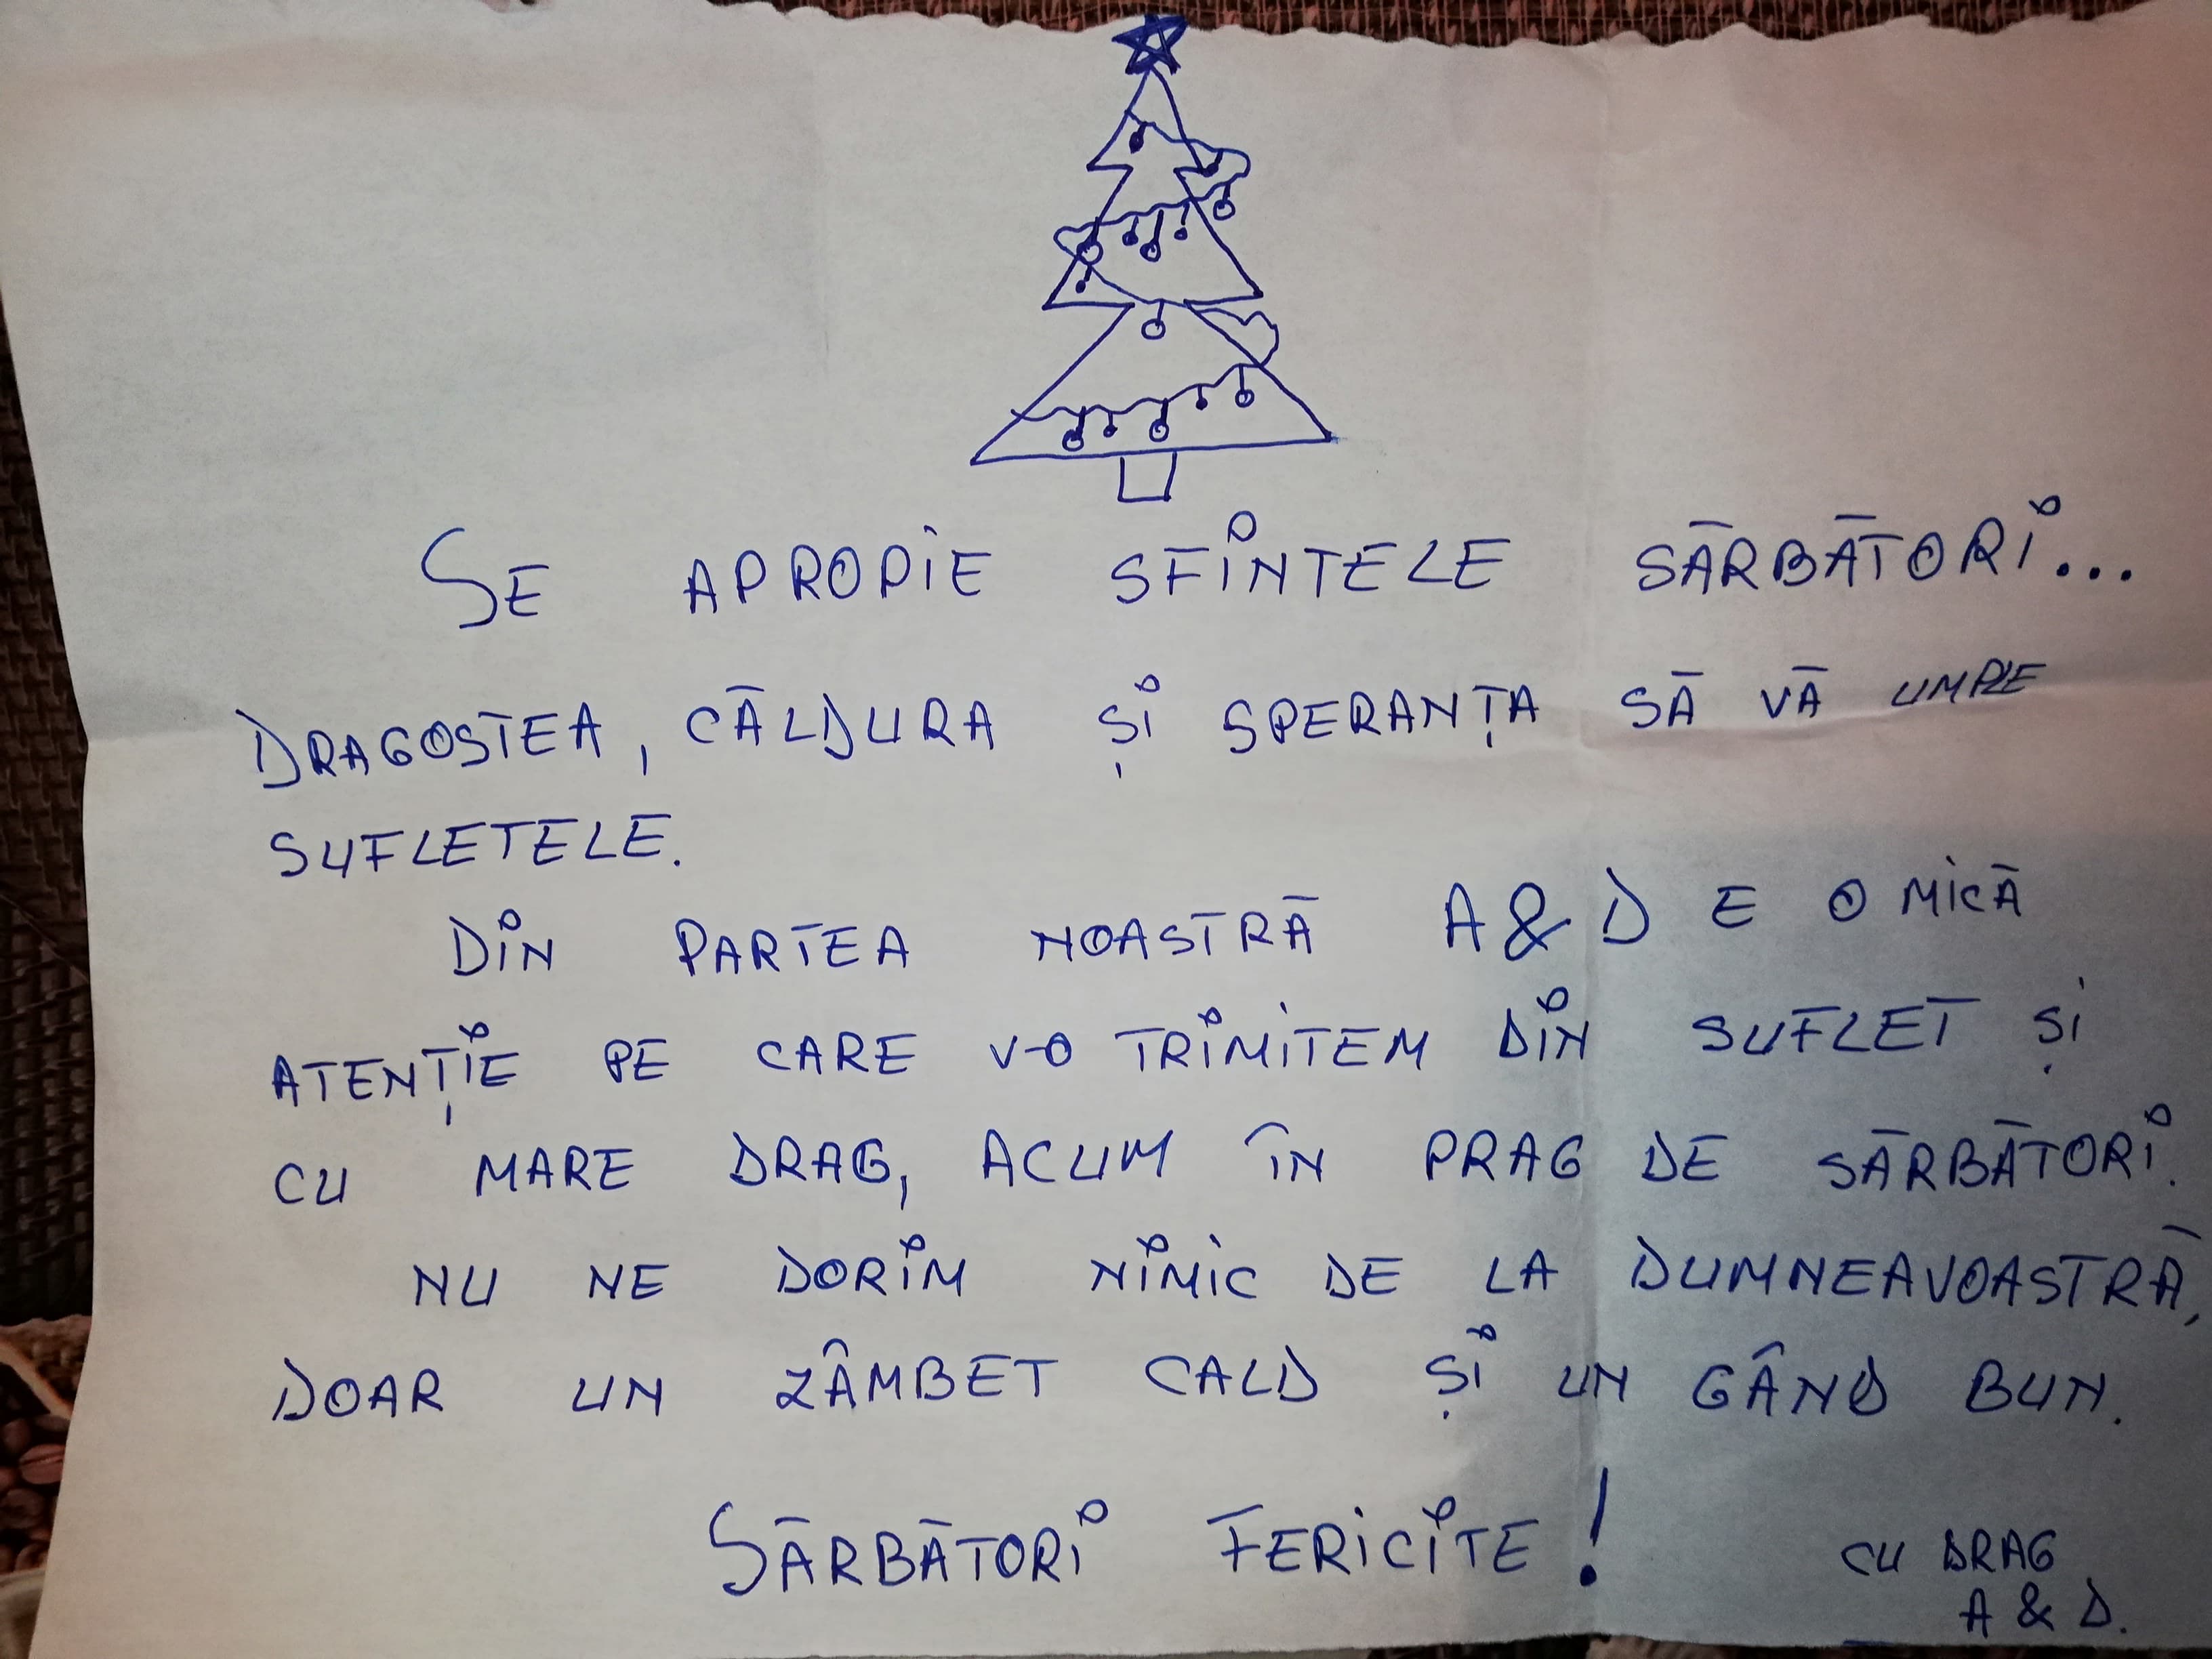 SE APROPIE SFINTELE SĂRBĂTORI...
DRAGOSTEA, CĂLDURA ȘI SPERANȚA SĂ VĂ UMPLE
SUFLETELE.
DIN PARTEA NOASTRĂ A & D E O MICĂ
ATENȚIE PE CARE V-O TRIMITEM DIN SUFLET ȘI
CU MARE DRAG, ACUM ÎN PRAG DE SĂRBĂTORI.
NU NE DORIM NIMIC DE LA DUMNEAVOASTRĂ,
DOAR UN ZÂMBET CALD ȘI UN GÂND BUN.
SĂRBĂTORI FERICITE!
CU DRAG
A & D.